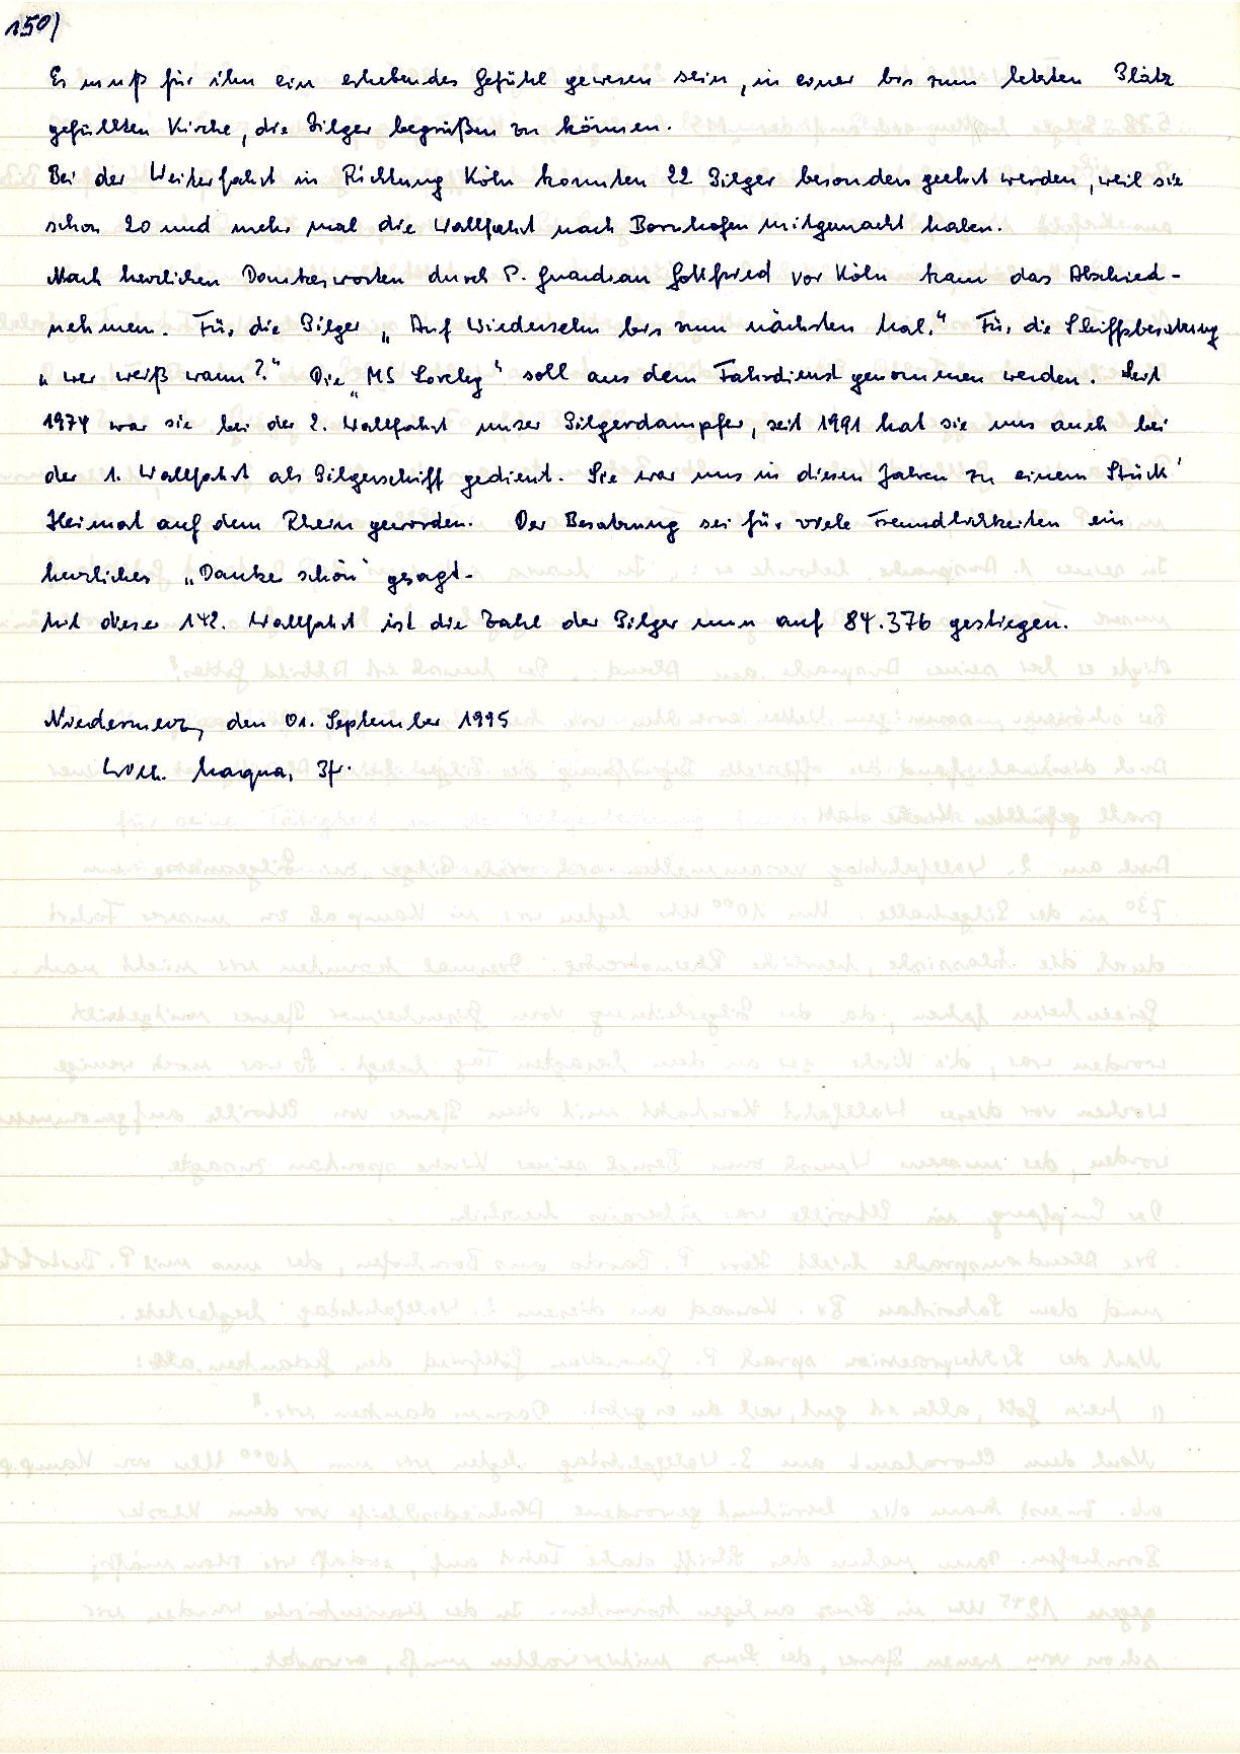 150)
Es muß für ihn ein erhebendes Gefühl gewesen sein, in einer bis zum letzten Platz
gefüllten Kirche, die Pilger begrüßen zu können.
Bei der Weiterfahrt in Richtung Köln konnten 22 Pilger besonders geehrt werden, weil sie
schon 20 und mehr mal die Wallfahrt nach Bornhofen mitgemacht haben.
Nach herzlichen Dankesworten durch P. Guardian Gottfried vor Köln kam das Abschied-
nehmen. Für die Pilger „Auf Wiedersehn bis zum nächsten Mal." Für die Schiffsbesatzung
„wer weiß wann?." Die „MS Loreley" soll aus dem Fahrdienst genommen werden. Seit
1974 war sie bei der 2. Wallfahrt unser Pilgerdampfer, seit 1991 hat sie uns auch bei
der 1. Wallfahrt als Pilgerschiff gedient. Sie war uns in diesen Jahren zu einem Stück
Heimat auf dem Rhein geworden. Der Besatzung sei für viele Freundlichkeiten ein
herzliches „Danke schön" gesagt.
Mit dieser 142. Wallfahrt ist die Zahl der Pilger nun auf 84.376 gestiegen.
Niedermerz, den 01. September 1995
Marquar,